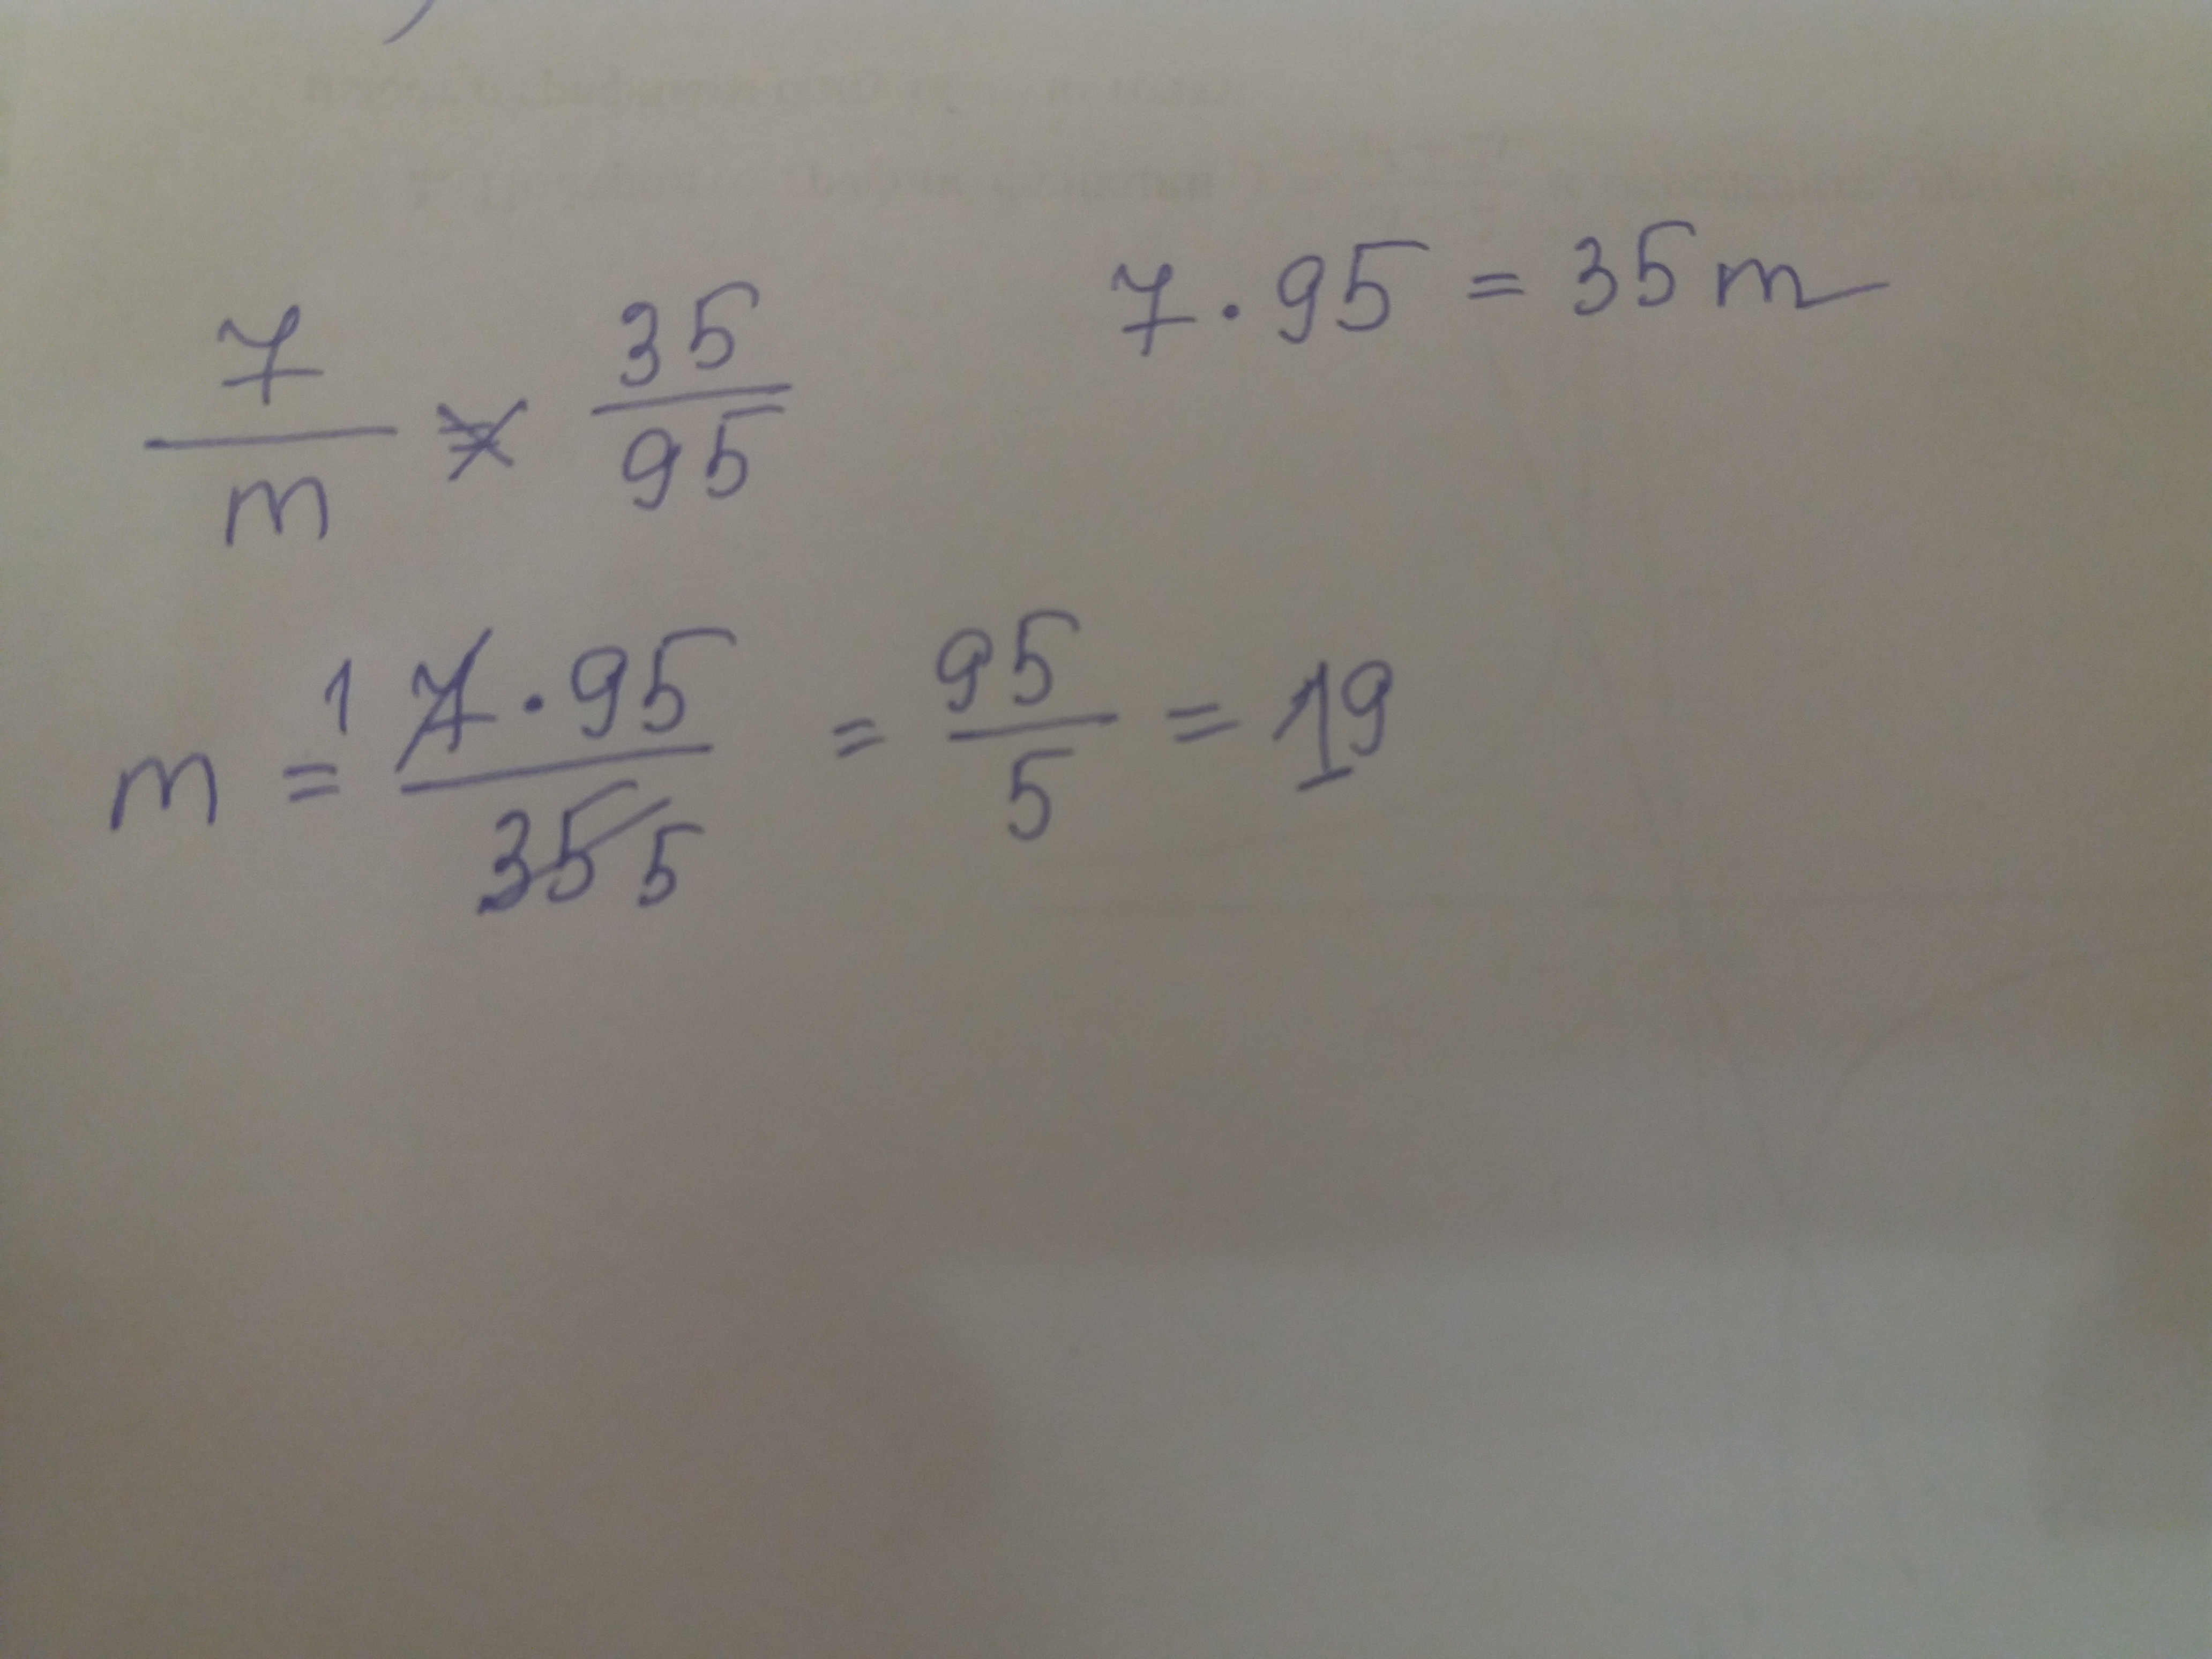 7/m = 35/95
7 · 95 = 35m
m = 1 7 · 95 / 35 5 = 95/5 = 19